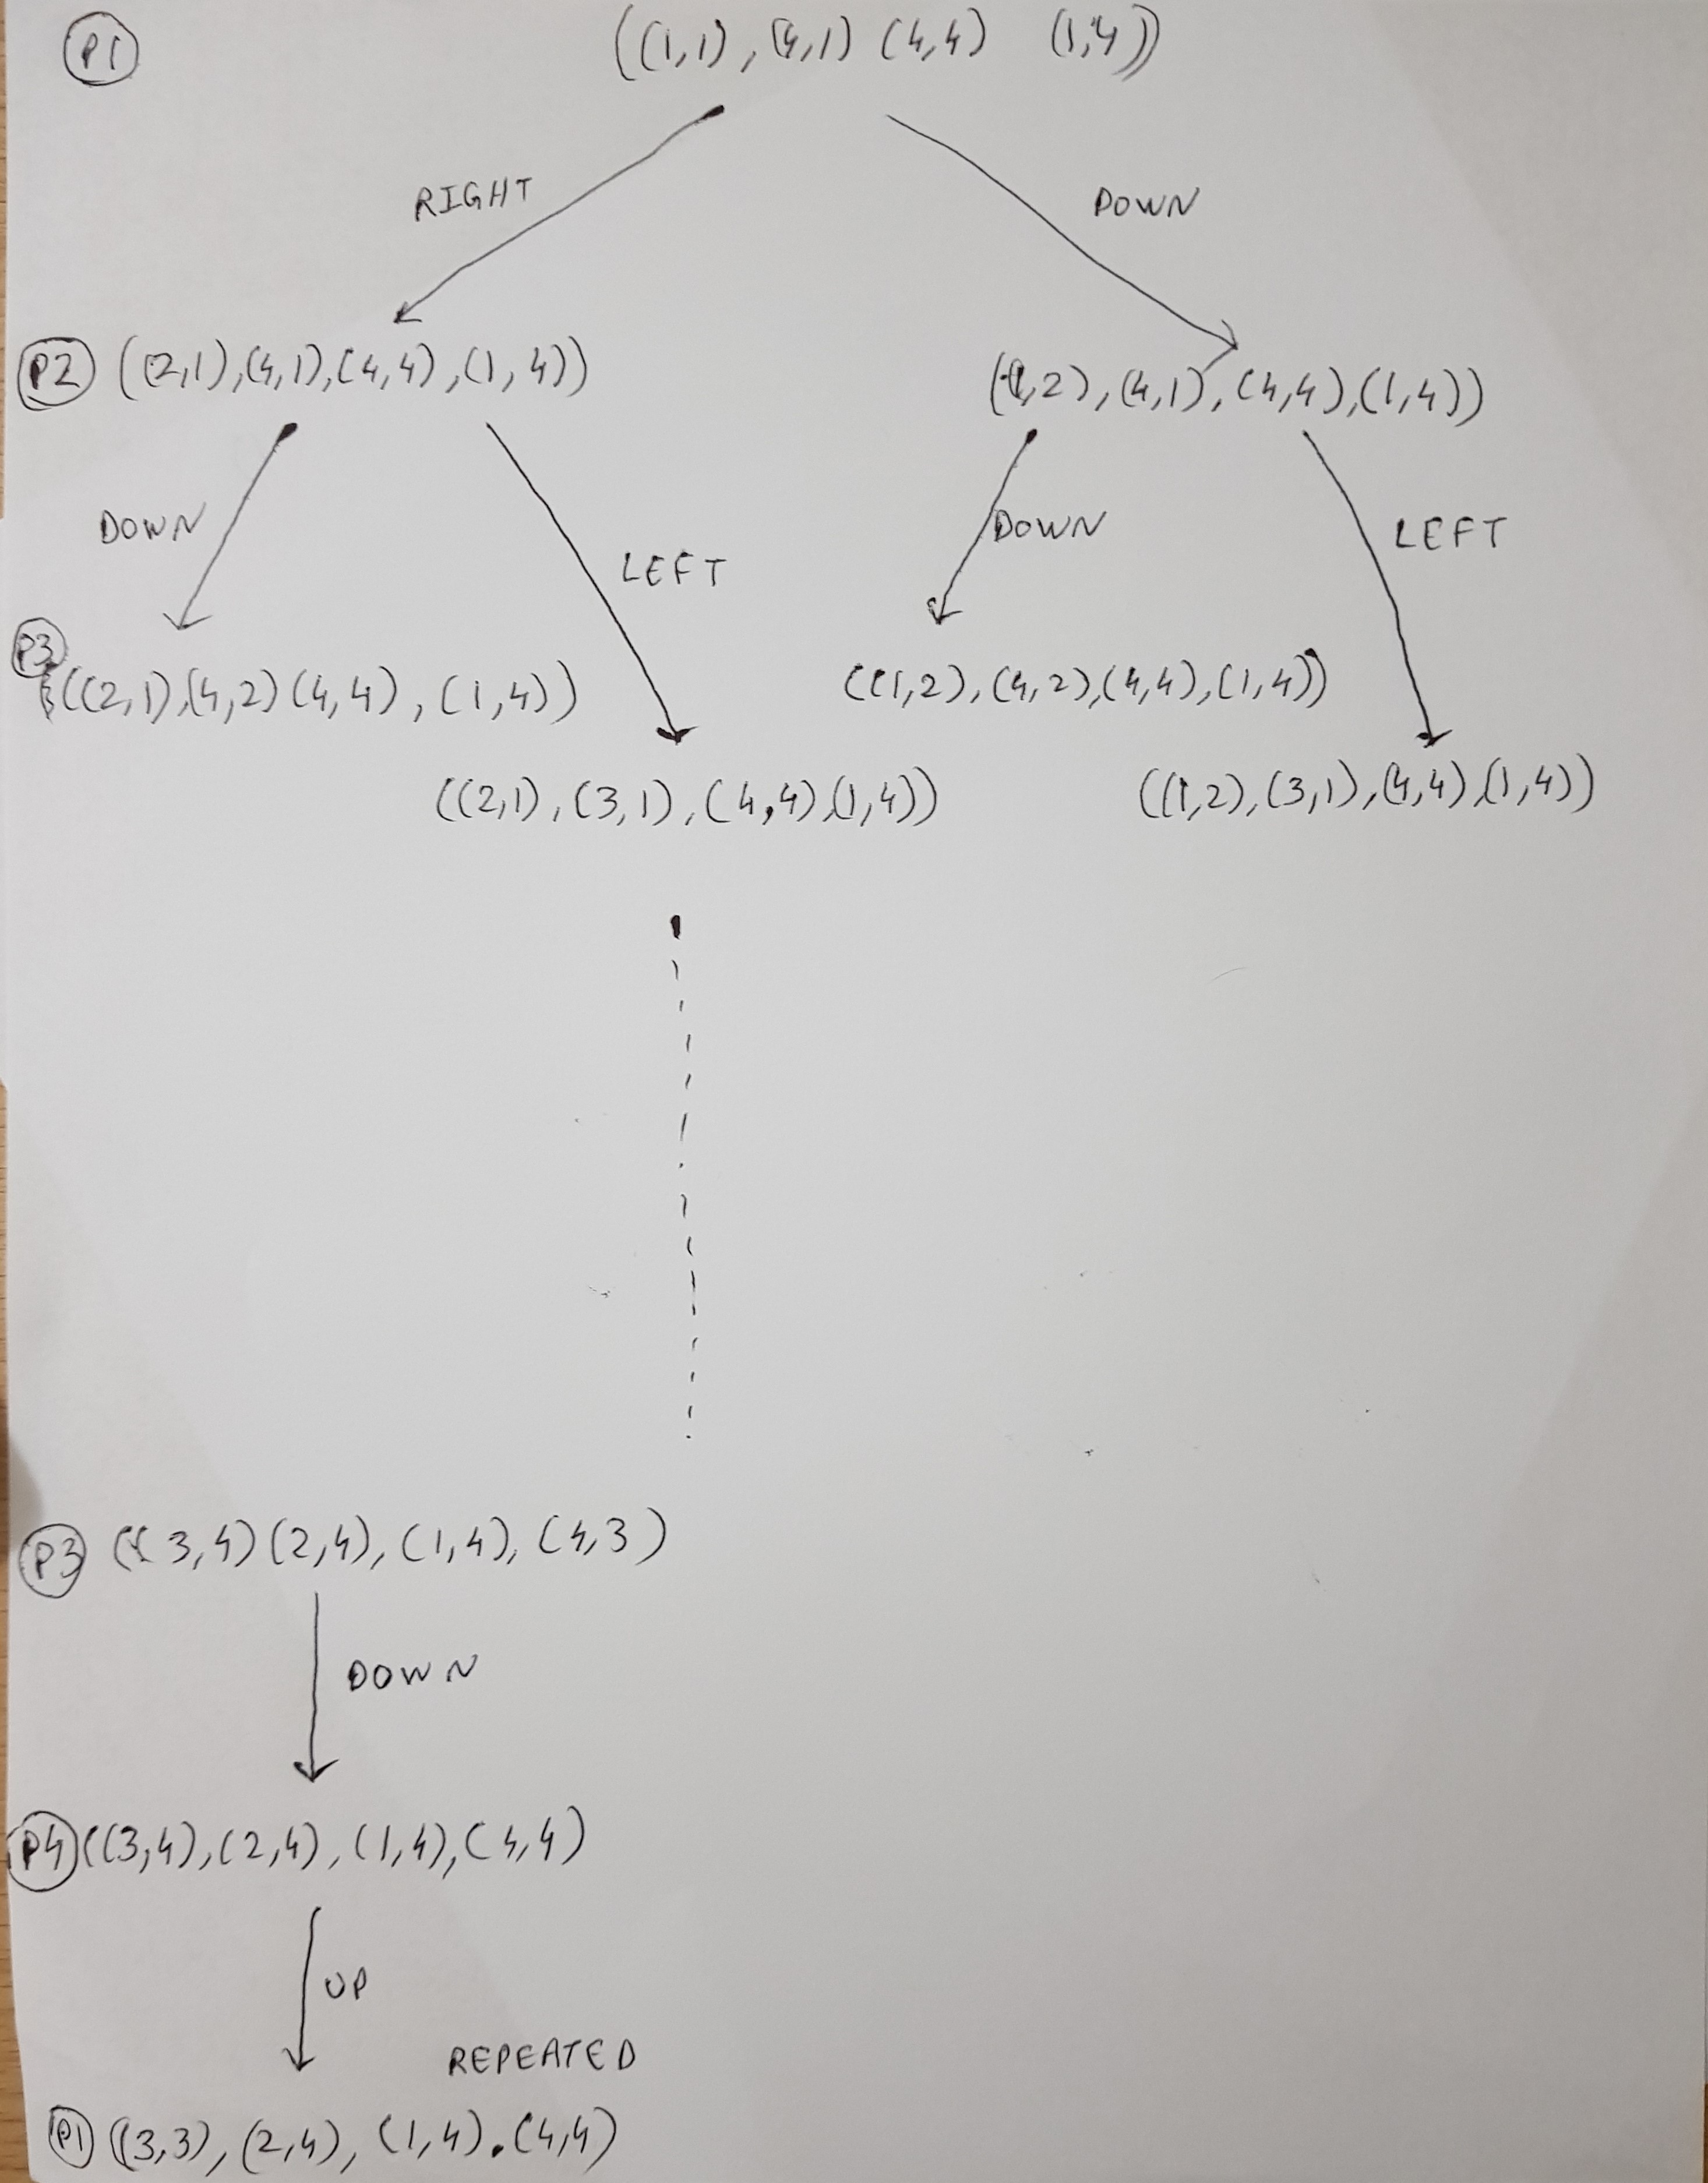 P1 ((1,1), (4,1) (4,4) (1,4))
RIGHT DOWN
P2 ((2,1),(4,1),(4,4),(1,4)) ((1,2),(4,1),(4,4),(1,4))
DOWN LEFT DOWN LEFT
P3 ((2,1),(4,2)(4,4),(1,4)) ((1,2),(4,2),(4,4),(1,4))
((2,1),(3,1),(4,4),(1,4)) ((1,2),(3,1),(4,4),(1,4))
P3 ((3,4)(2,4),(1,4),(4,3)
DOWN
P4 ((3,4),(2,4),(1,4),(4,4)
UP
REPEATED
P1 ((3,3),(2,4),(1,4).(4,4)